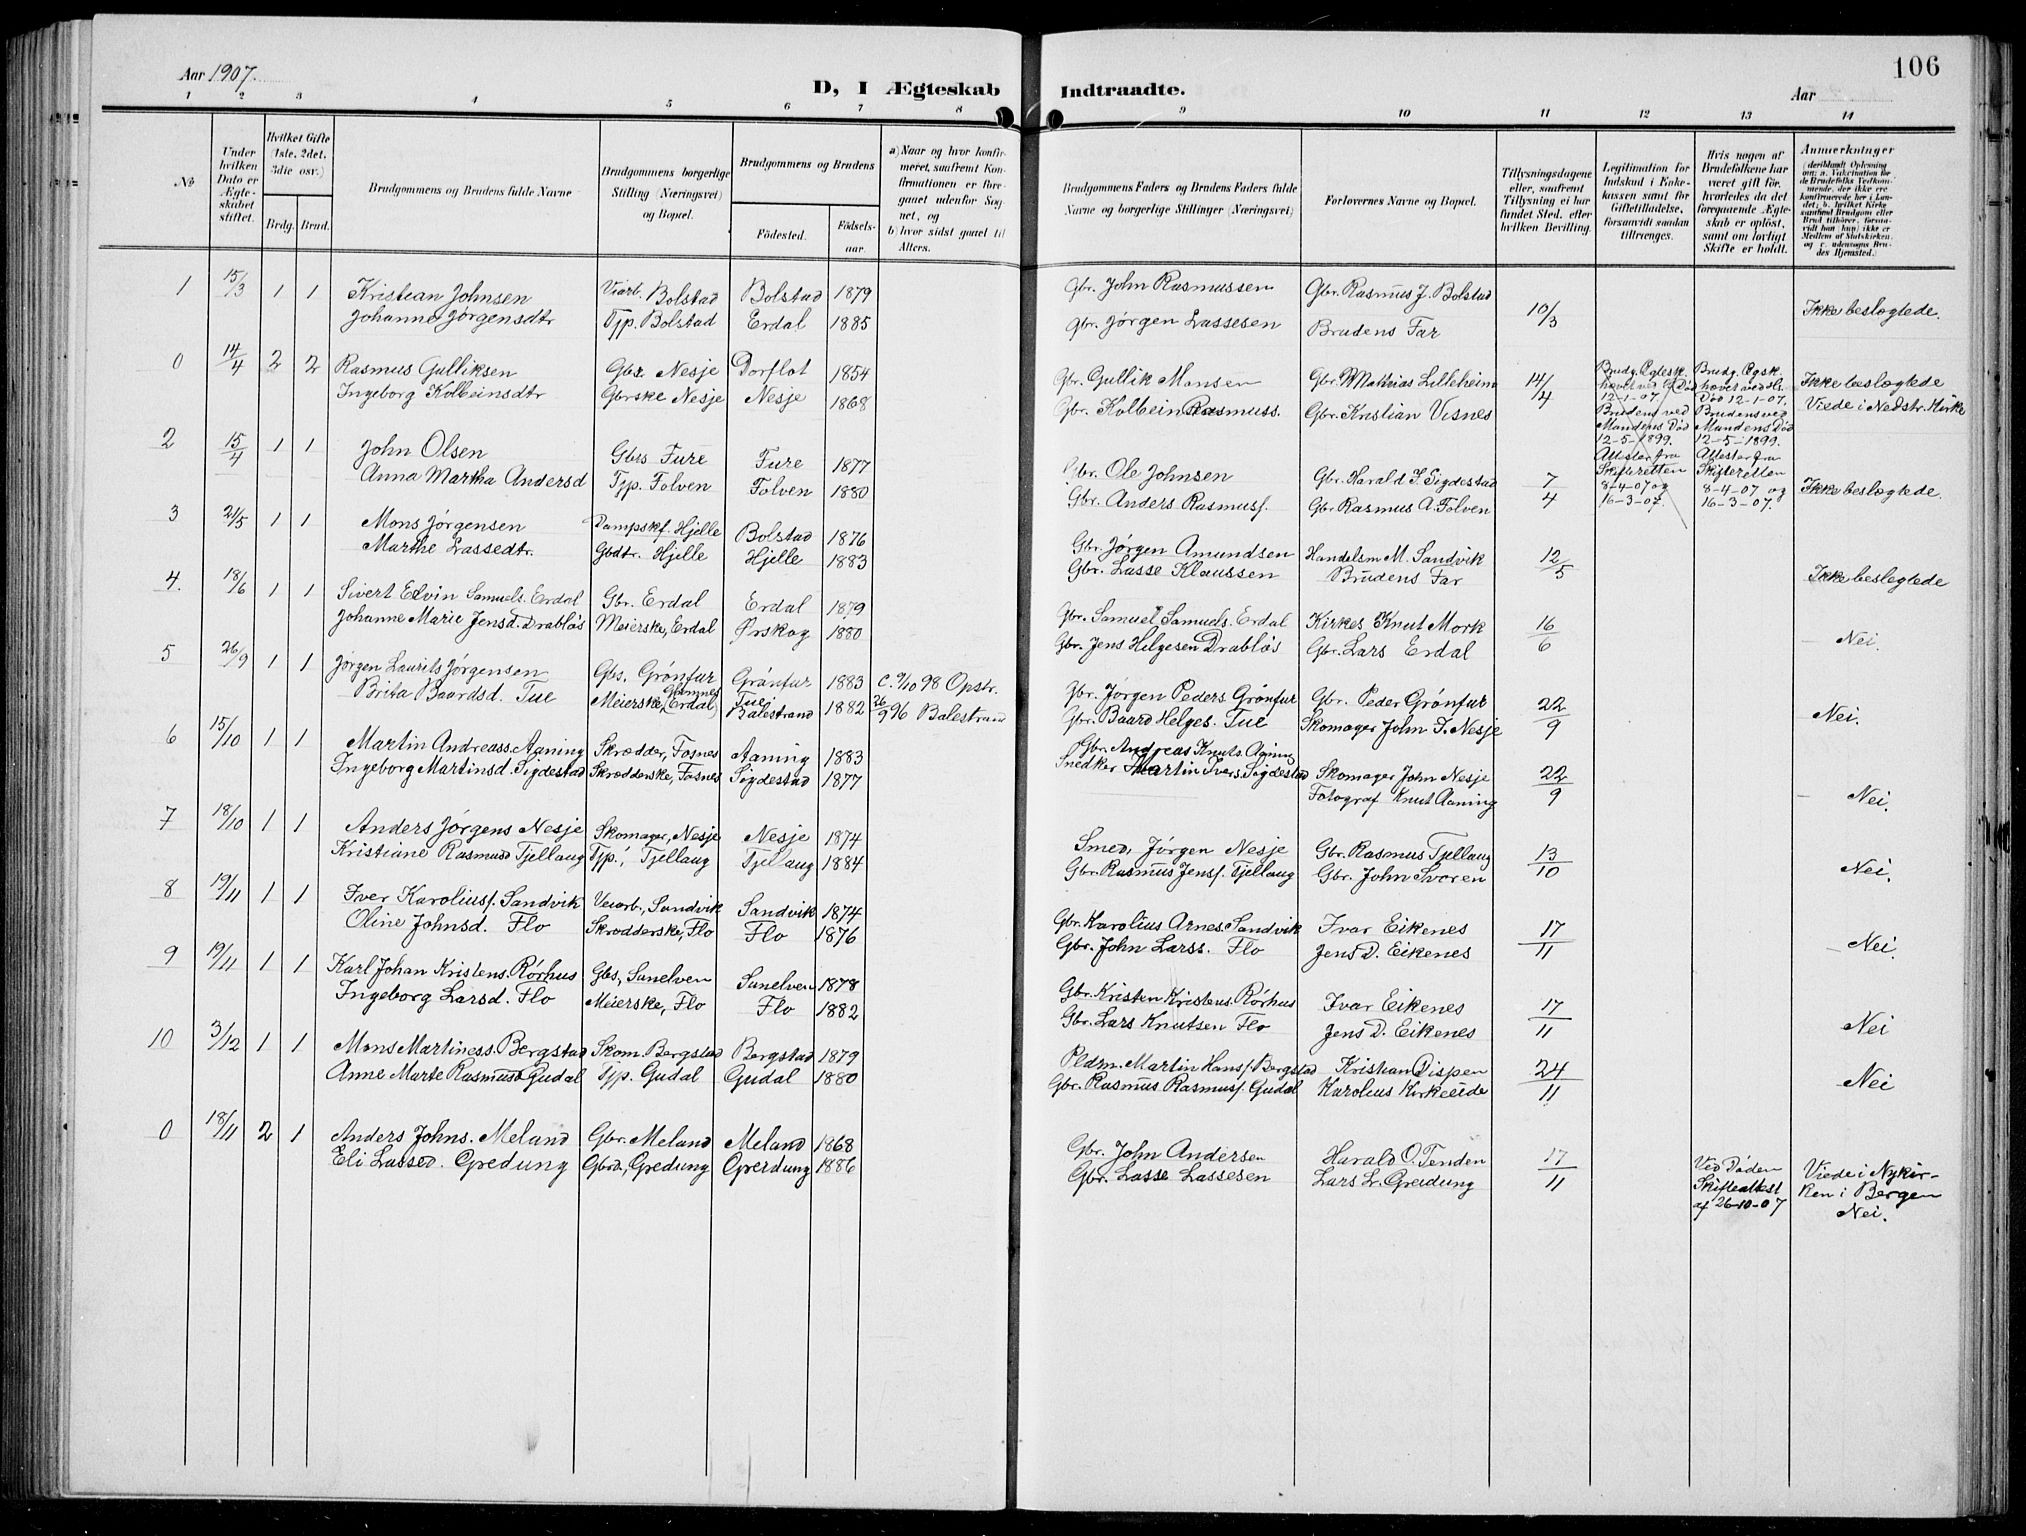 Aar 1907.
D, I Ægteskab Indtraadte.
106
Aar
1 2 3 4 5 6 7 8 9 10 11 12 13 14
No
Under hvilken Dato er Ægteskabet stiftet.
Hvilket Gifte (1ste, 2det, 3die osv.)
Brdg. Brud.
Brudgommens og Brudens fulde Navne
Brudgommens borgerlige Stilling (Næringsvei) og Bopæl.
Brudgommens og Brudens
Fødested. Fødselsaar.
a) Naar og hvor konfirmeret, saafremt Konfirmationen er foregaaet udenfor Sognet, og
b) hvor sidst gaaet til Alters.
Brudgommens Faders og Brudens Faders fulde Navne og borgerlige Stillinger (Næringsvei)
Forlovernes Navne og Bopæl.
Tillysningsdagene eller, saafremt Tillysning ei har fundet Sted, efter hvilken Bevilling.
Legitimation for Indskud i Enkekassen samt for Giftetilladelse, forsaavidt saadan tiltrænges.
Hvis nogen af Brudefolkene har været gift før, hvorledes da det foregaaende Ægteskab er opløst, samt om lovligt Skifte er holdt.
Anmerkninger
1 15/3 1 1 Kristian Johnsen Viarb. Bolstad Bolstad 1879 Gbr. John Rasmussen Gbr. Rasmus J. Bolstad 10/3 Ikke beslegtede.
Johanne Jørgensdtr Tjp. Bolstad Erdal 1885 Gbr. Jørgen Lassesen Brudens Far
0 14/4 2 2 Rasmus Gulliksen Gbr. Nesje Dorflot 1854 Gbr. Gullik Monsen Gbr. Mathias Lilleheim 14/4 Ikke beslegtede
Ingeborg Kolbeinsdtr Gbrske Nesje Nesje 1868 Gbr. Kolbein Rasmuss. Gbr. Kristian Visnes Viede i Nedstr. Kirke
Brudg. Egtesk. hevet ved Døds 12-1-07. Brudens ved Mandens Død 12-5-1899. Attester fra Skifteretten 8-4-07 og 16-3-07.
Brudg. Egsk. hevet ved Hs. Død 12-1-07. Brudens ved Mandens Død 12-5-1899. Attester fra Skifteretten 8-4-07 og 16-3-07.
2 15/4 1 1 John Olsen Gbs Fure Fure 1877 Gbr. Ole Johnsen Gbr. Harald J. Sigdestad 7/4 Ikke beslegtede.
Anna Martha Andersd Tjp. Folven Folven 1880 Gbr. Anders Rasmusf. Gbr Rasmus A. Folven
3 21/5 1 1 Mons Jørgensen Dampskf. Hjelle Bolstad 1876 Gbr. Jørgen Amundsen Handelsm M. Sandvik 12/5 Ikke beslegtede
Marthe Lassedtr. Gbdtr. Hjelle Hjelle 1883 Gbr. Lasse Klaussen Brudens Far
4. 18/6 1 1 Sivert Edvin Samuels. Erdal Gbr. Erdal Erdal 1879 Gbr. Samuel Samuels. Erdal Kirkes Knut Mork 16/6 - Nei.
Johanne Marie Jensd. Drabløs Meierske, Erdal Ørskog 1880 Gbr. Jens Helgesen Drabløs Gbr. Lars Erdal
5 26/9 1 1 Jørgen Laurits Jørgensen Gbs. Grønfur Grønfur 1883 C. 9/10 98 Opstr. Gbr. Jørgen Peders. Grønfur Gbr. Peder Grønfur 22/9 Nei.
Brita Baardsd. Tue Meierske, Erdal Tue Balestrand 1882 26/9 96 Balestrand Gbr. Baard Helges. Tue Skomager John J. Nesje
6 15/10 1 1 Martin Andreass. Aaning Skrædder, Fosnes Aaning 1883 Gbr. Andreas Knuts. Aaning Skomager John Nesje 22/9 - Nei.
Ingeborg Martinsd. Sigdestad Skrædderske, Fosnes Sigdestad 1877 Snedker Martin Ivers. Sigdestad Fotograf Knut Aaning
7 18/10 1 1 Anders Jørgens Nesje Skomager, Nesje Nesje 1874 Smed, Jørgen Nesje Gbr. Rasmus Tjellaug 13/10 Nei.
Kristiane Rasmusd Tjellaug Tjp., Tjellaug Tjellaug 1884 Gbr. Rasmus Jensf. Tjellaug Gbr. John Svoren
8 19/11 1 1 Iver Karoliusf. Sandvik Veiarb., Sandvik Sandvik 1874 Gbr. Karolius Arnes. Sandvik Ivar Eikenes 17/11 - Nei.
Oline Johnsd. Flo Skrædderske, Flo Flo 1876 Gbr. John Larss. Flo Jens D. Eikenes
9 19/11 1 1 Karl Johan Kristens. Rørhus Gbs, Sunelven Sunelven 1878 Gbr. Kristen Kristens. Rørhus Ivar Eikenes 17/11 Nei
Ingeborg Larsd. Flo Meierske, Flo Flo 1882 Gbr. Lars Knutsen Flo Jens D. Eikenes
10 3/12 1 1 Mons Martiness. Bergstad Skom. Bergstad Bergstad 1879 Pldm. Martin Hansf. Bergstad Kristian Dispen 24/11 Nei
Anne Marte Rasmusd Gudal Tjp. Gudal Gudal 1880 Gbr. Rasmus Rasmusf. Gudal Karolius Kirkeeide
0 18/11 2 1 Anders Johns. Meland Gbr. Meland Meland 1868 Gbr. John Andersen Harald O. Tenden 17/11 Ved Døden Skifteattest af 26-10-07 Viede i Nykirken i Bergen Nei.
Eli Lassed. Gredung Gbrd., Gredung Grerdung 1886 Gbr. Lasse Lassesen Lars L. Greidung